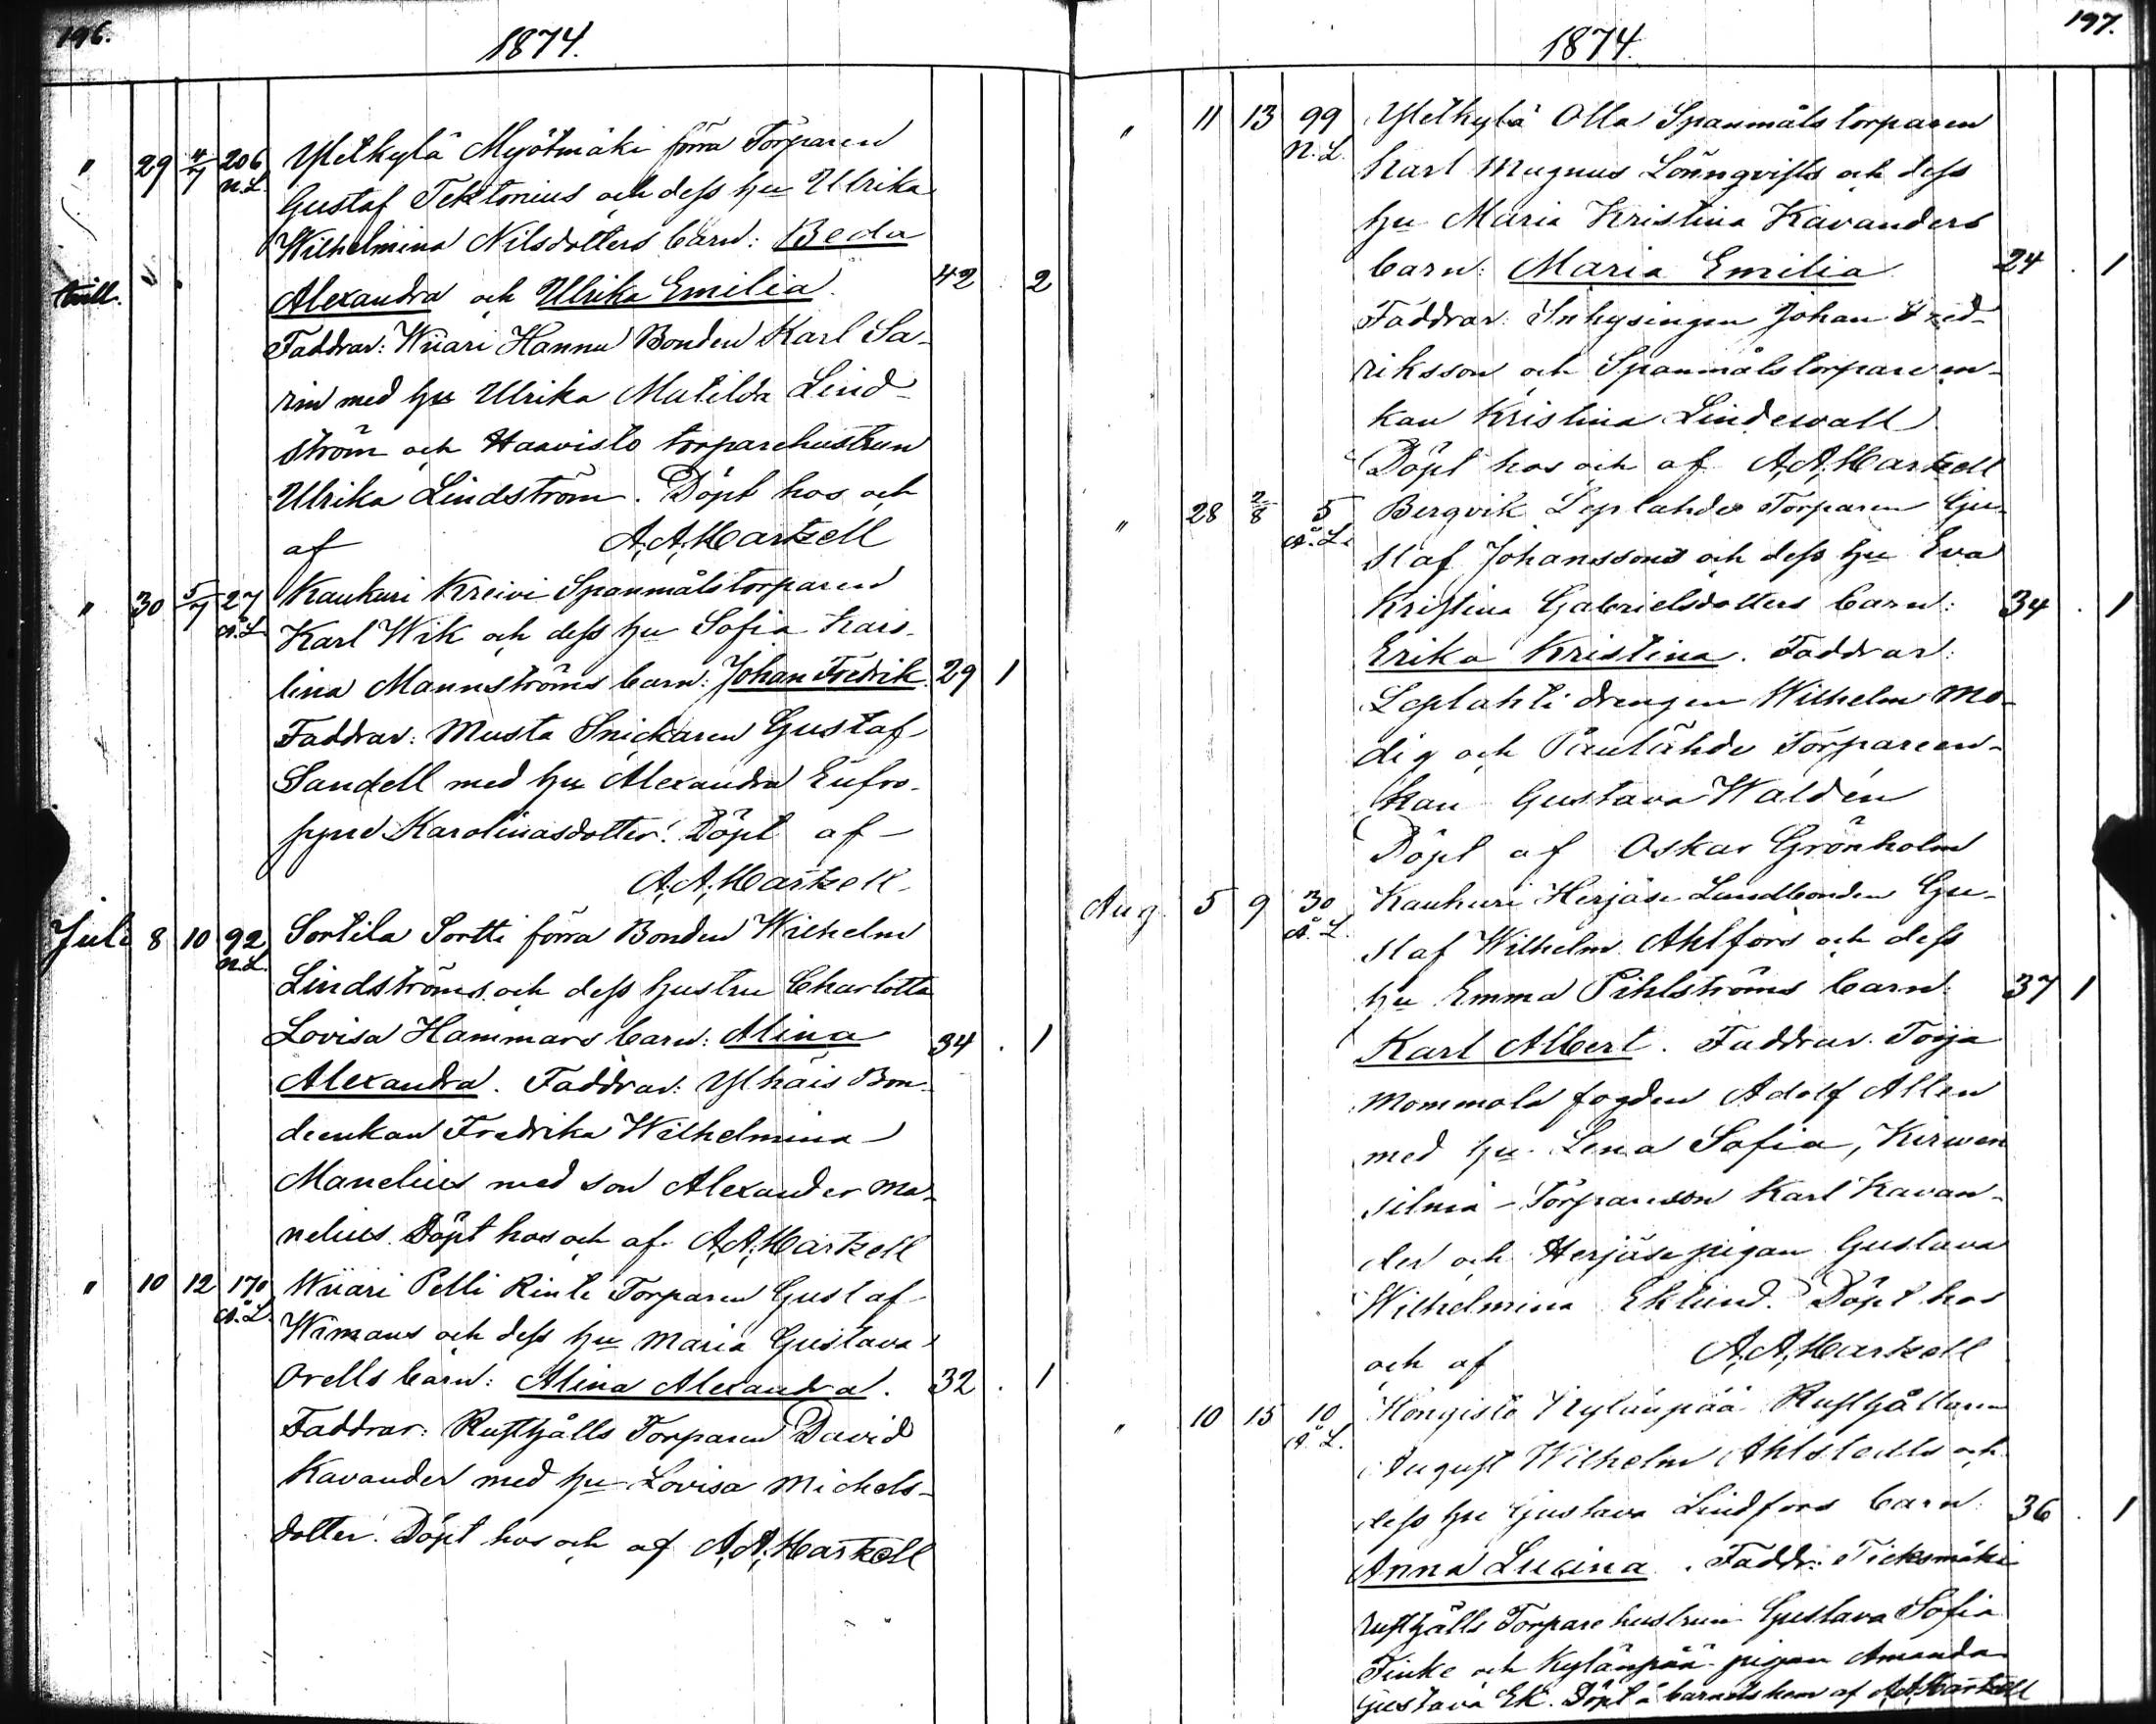 196.
1874.
" 29 4/7 206 Yletkylä Myötmäki förra Torparen
N.L. Gustaf Tektonius och dess hu Ulrika
Wilhelmina Nilsdotters barn: Beda
tvill. Alexandra och Ulrika Emilia. 42 . 2
Faddrar: Wiiari Hannu Bonden Karl Sa-
rin med hu Ulrika Matilda Lind-
ström och Haavisto torparehustrun
Ulrika Lindström. Döpt hos och
af A. A. Hartzell
" 30 5/7 27 Kaukuri Kreivi Spanmålstorparen
Å.L. Karl Wik och dess hu Sofia Karo-
lina Mannströms barn: Johan Fredrik. 29 1
Faddrar: Musta Snickaren Gustaf
Sandell med hu Alexandra Eufro-
syne Karolinasdotter. Döpt af
A. A. Hartzell
Juli 8 10 92 Sortila Sortti förra Bonden Wilhelm
N.L. Lindströms och dess hustru Charlotta
Lovisa Hammars barn: Alina 34 . 1
Alexandra. Faddrar: Ylhäis Bon-
deenkan Fredrika Wilhelmina
Manelius med son Alexander Ma-
nelius. Döpt hos och af A. A. Hartzell
" 10 12 170 Wiiari Pelli Rinte Torparen Gustaf
Å.L. Wimans och dess hu Maria Gustava
Orells barn: Alina Alexandra. 32 . 1
Faddrar: Rusthålls Torparen David
Kavander med hu Lovisa Michels-
dotter. Döpt hos och af A. A. Hartzell
197.
1874.
" 11 13 99 Yletkylä Olla Spanmåls torparen
N.L. Karl Magnus Lönnqvists och dess
hu Maria Kristina Kavanders
barn: Maria Emilia. 24 . 1
Faddrar: Inhysingen Johan Fred-
riksson och Spanmålstorpareen-
kan Kristina Lindewall
Döpt hos och af A. A. Hartzell
" 28 2/8 5 Bergvik Leplahde Torparen Gu-
Å.L. staf Johanssons och dess hu Eva
Kristina Gabrielsdotters barn: 34 . 1
Erika Kristina. Faddrar:
Leplahti drengen Wilhelm Mo-
dig och Paulähde Torpareen-
kan Gustava Waldén
Döpt af Oskar Grönholm
Aug. 5 9 30 Kaukuri Herjäse Landbonden Gu-
Å.L. staf Wilhelm Ahlfors och dess
hu Emma Pihlströms barn: 37 1
Karl Albert. Faddrar: Torja
Mommola fogden Adolf Allen
med hu Lena Sofia, Kirwen
silmä - Torpareson Karl Kavan-
der och Herjäse pigan Gustava
Wilhelmina Eklund. Döpt hos
och af A. A. Hartzell
" 10 15 10 Köngistö Kylänpää Rusthållaren
Å.L. August Wilhelm Ahlstedts och
dess hu Gustava Lindfors barn: 36 . 1
Anna Lucina. Faddr: Ticksmäki
rusthålls Torpare hustrun Gustava Sofia
Finke och Kylänpää pigan Amanda
Gustava Ek. Döpt i barnets hem af A. A. Hartzell